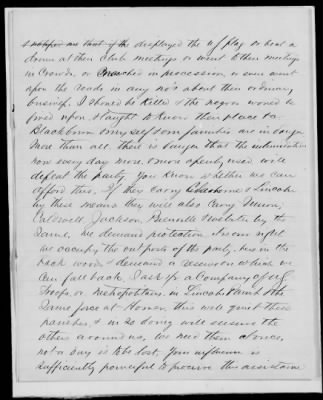 & notifies me that if the displayed the US flag or beat a
drum at their Club meetings or went to their meetings
in Crowds, or marched in procession or even went
upon the roads in any no's about their ordinary
business. I should be killed & the negroes would be
fired upon & taught to know their place &c
Blackburn & myself & our families are in danger
more than all. There is danger that the intimidation
now every day more & more openly used will
defeat the party. You know whether we can
afford this. If they carry Claiborne & Lincoln
by these means they will also carry Union,
Caldwell, Jackson, Bienville & Webster by the
same. We demand protection. As an outlet
we occupy the outposts of the party here in the
back woods & demand a reserve on which we
can fall back. I ask for a Company of US
Troops or Metropolitans in Lincoln Parish & the
same force at Homer. This will quiet these
parishes & in so doing will secure the
others around us. We need them at once,
not a day is to be lost. Your influence is
sufficiently powerful to procure this assistance